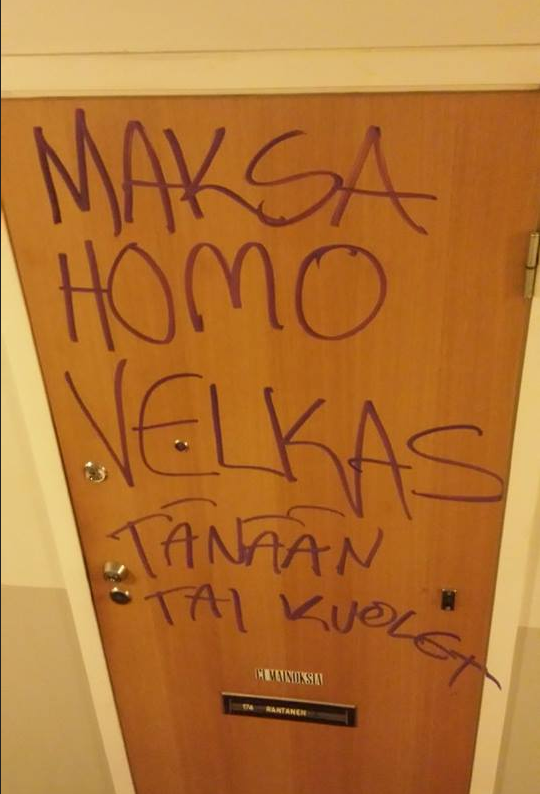 MAKSA
HOMO
VELKAS
TÄNÄÄN
TAI KUOLET
EI MAINOKSIA
174 RANTANEN